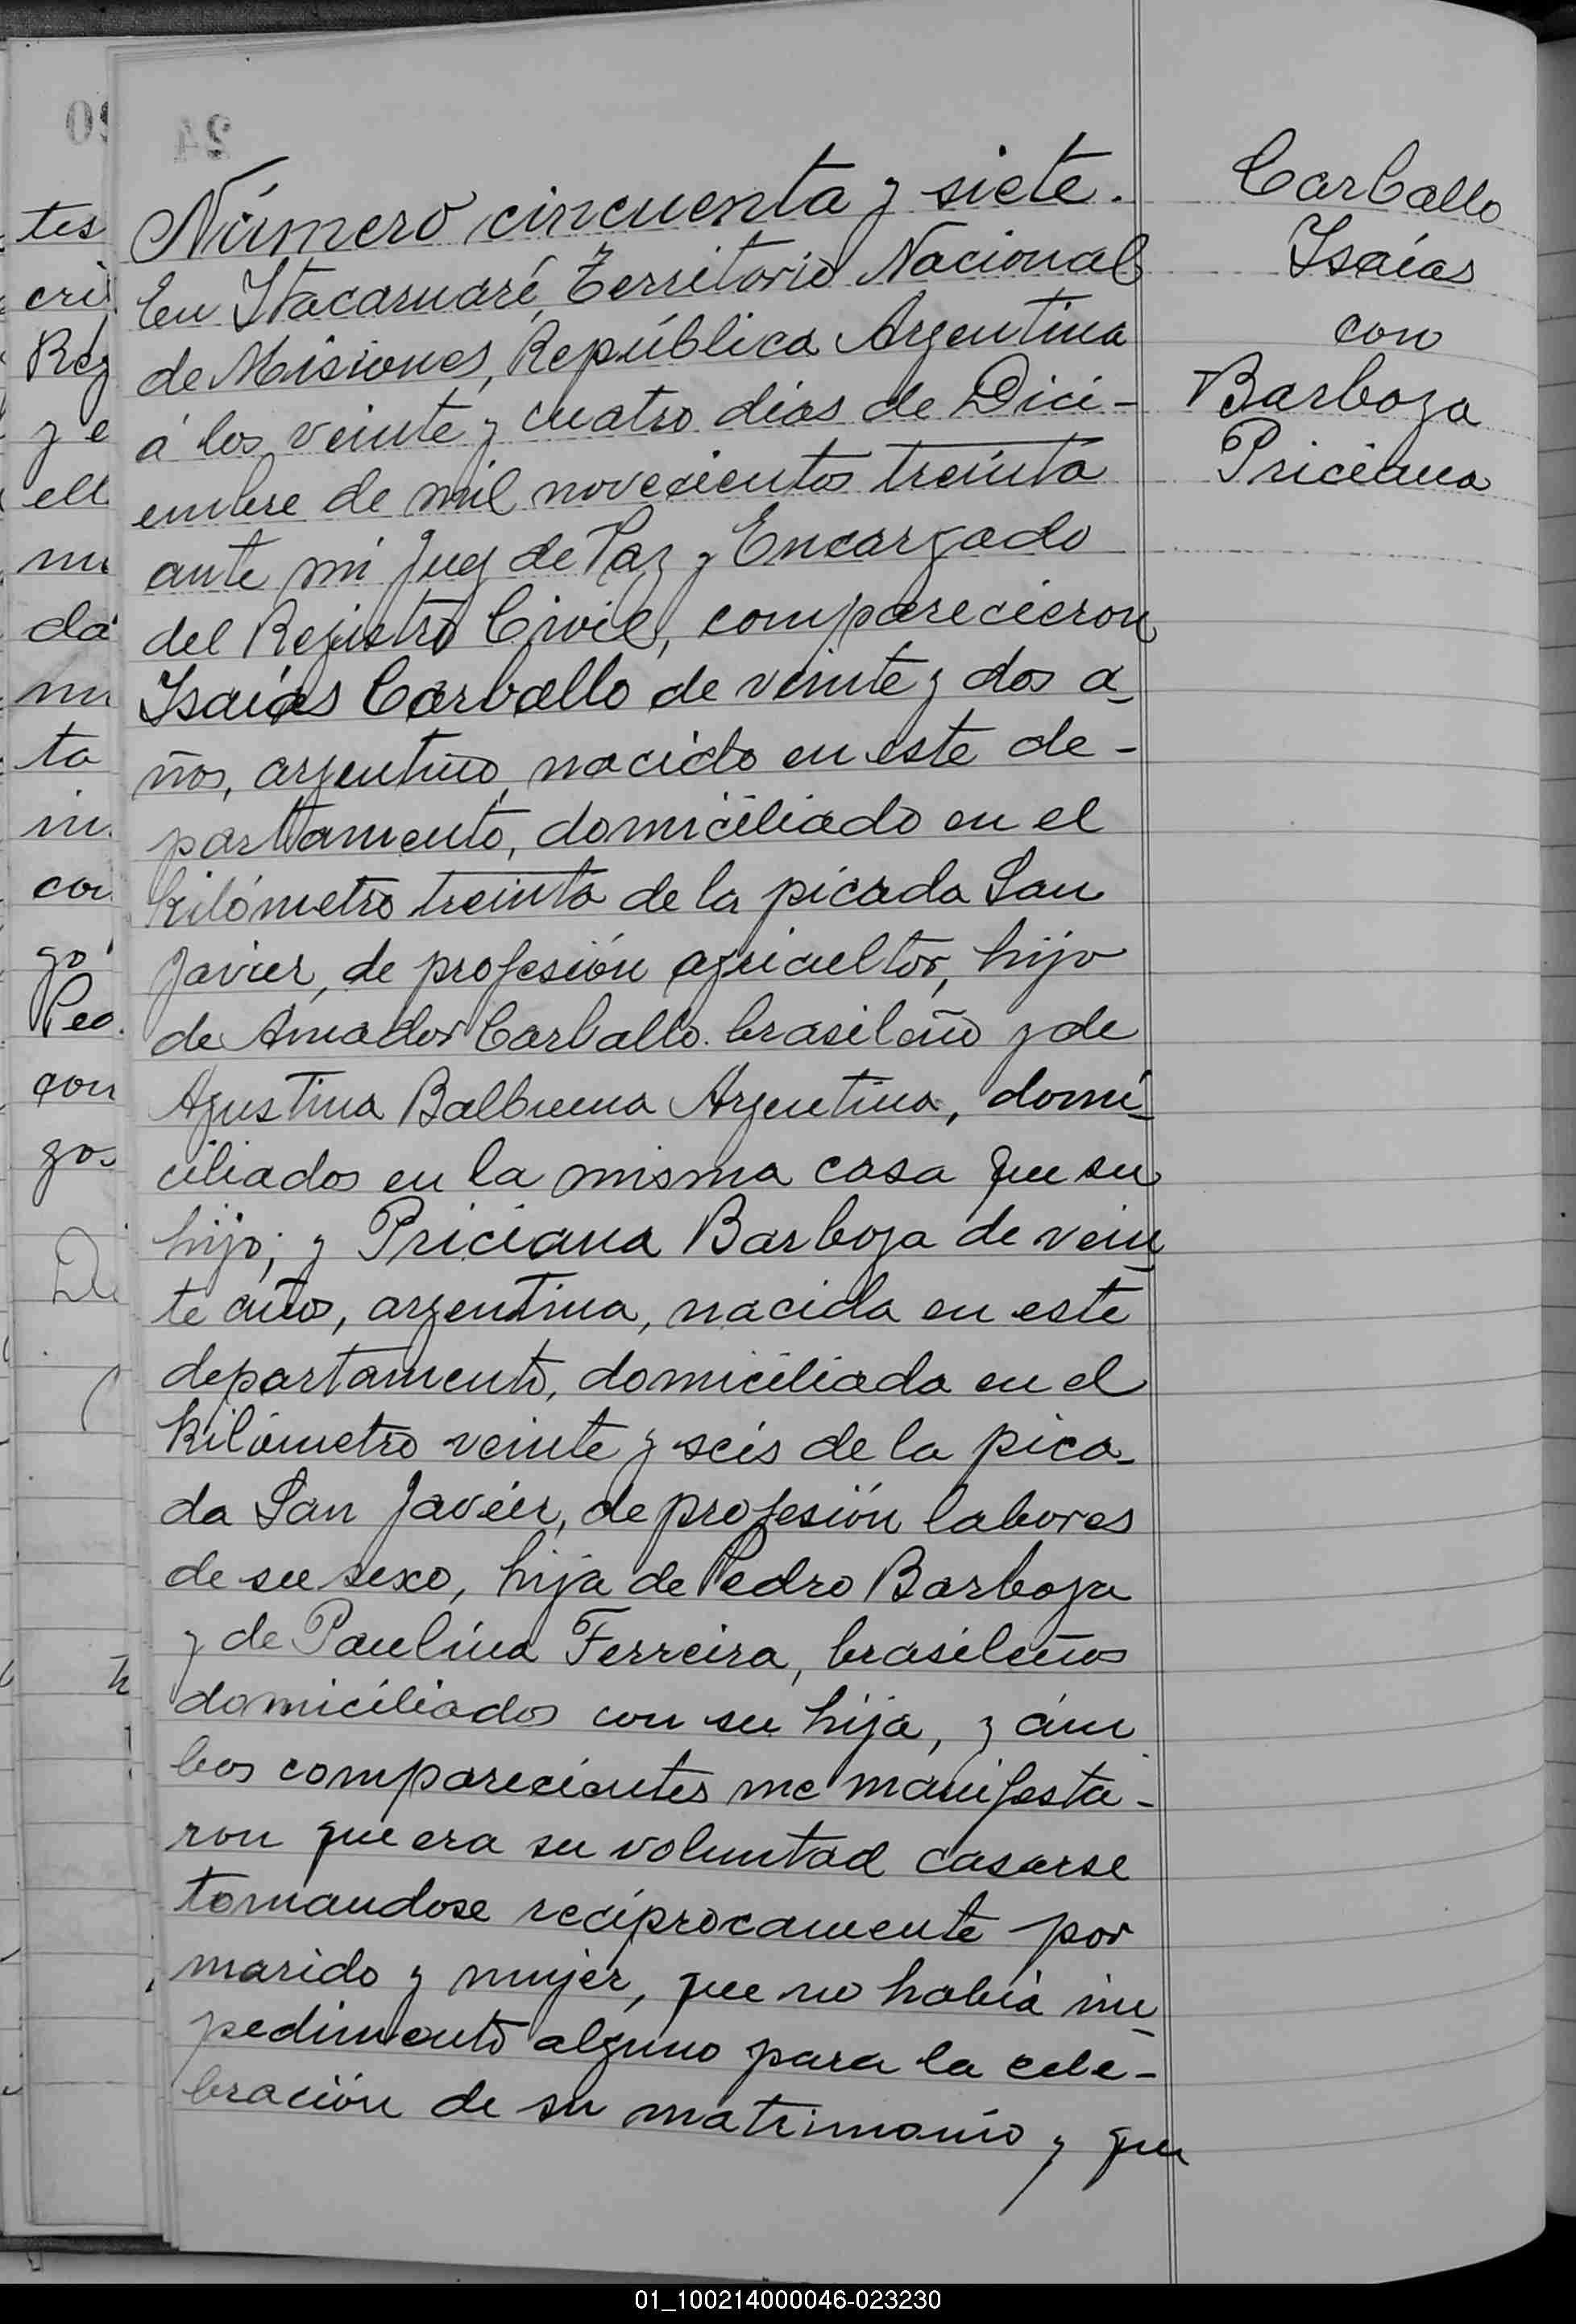 24
Número cincuenta y siete.
En Itacaruaré, Territorio Nacional
de Misiones, República Argentina
á los veinte y cuatro dias de Dici-
embre de mil novecientos treinta
ante mi Juez de Paz y Encargado
del Rejistro Civil, comparecieron
Isaías Carballo de veinte y dos a-
ños, argentino, nacido en este de-
partamento, domiciliado en el
kilómetro treinta de la picada San
Javier, de profesión agricultor, hijo
de Amador Carballo brasileño y de
Agustina Balbuena Argentina, domi-
ciliados en la misma casa que su
hijo; y Priciana Barboza de vein-
te años, argentina, nacida en este
departamento, domiciliada en el
kilómetro veinte y seis de la pica-
da San Javier, de profesión labores
de su sexo, hija de Pedro Barboza
y de Paulina Ferreira, brasileños
domiciliados con su hija, y ám
bos comparecientes me manifesta-
ron que era su voluntad casarse
tomandose recíprocamente por
marido y mujer, que no había im-
pedimento alguno para la cele-
bración de su matrimonio y que
Carballo
Isaías
con
Barboza
Priciana
tes
cri
Reg
y e
ell
mi
da
mi
ta
in
con
go
Ped
con
gos
01_100214000046-023230